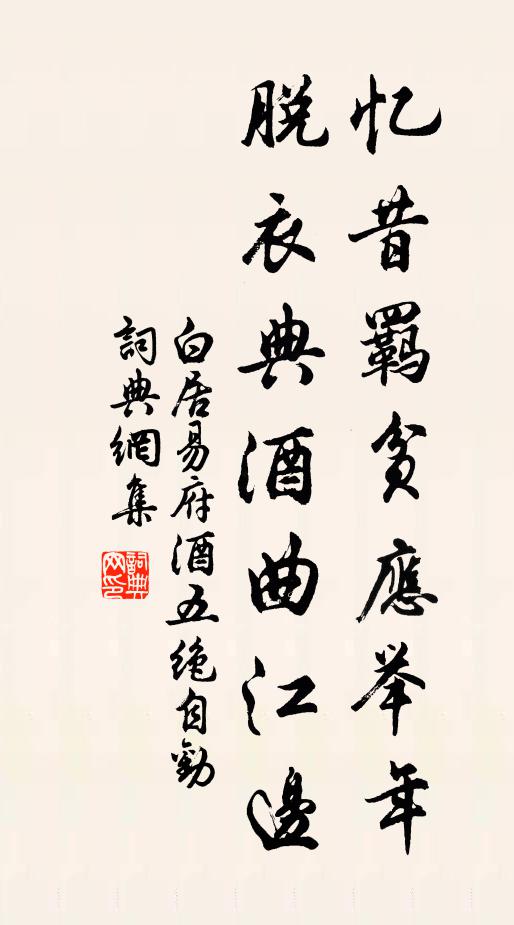 忆昔羁贫應举年
脱衣典酒曲江邊
白居易府酒五绝自勸
詞典網集
詞典网印